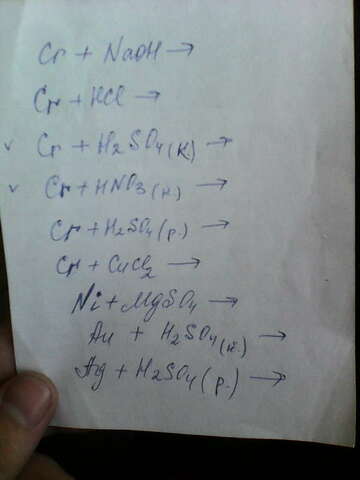 Cr + NaOH →
Cr + HCl →
v Cr + H2SO4 (к) →
v Cr + HNO3 (к) →
Cr + H2SO4 (р.) →
Cr + CuCl2 →
Ni + MgSO4 →
Au + H2SO4 (к.) →
Ag + H2SO4 (р.) →